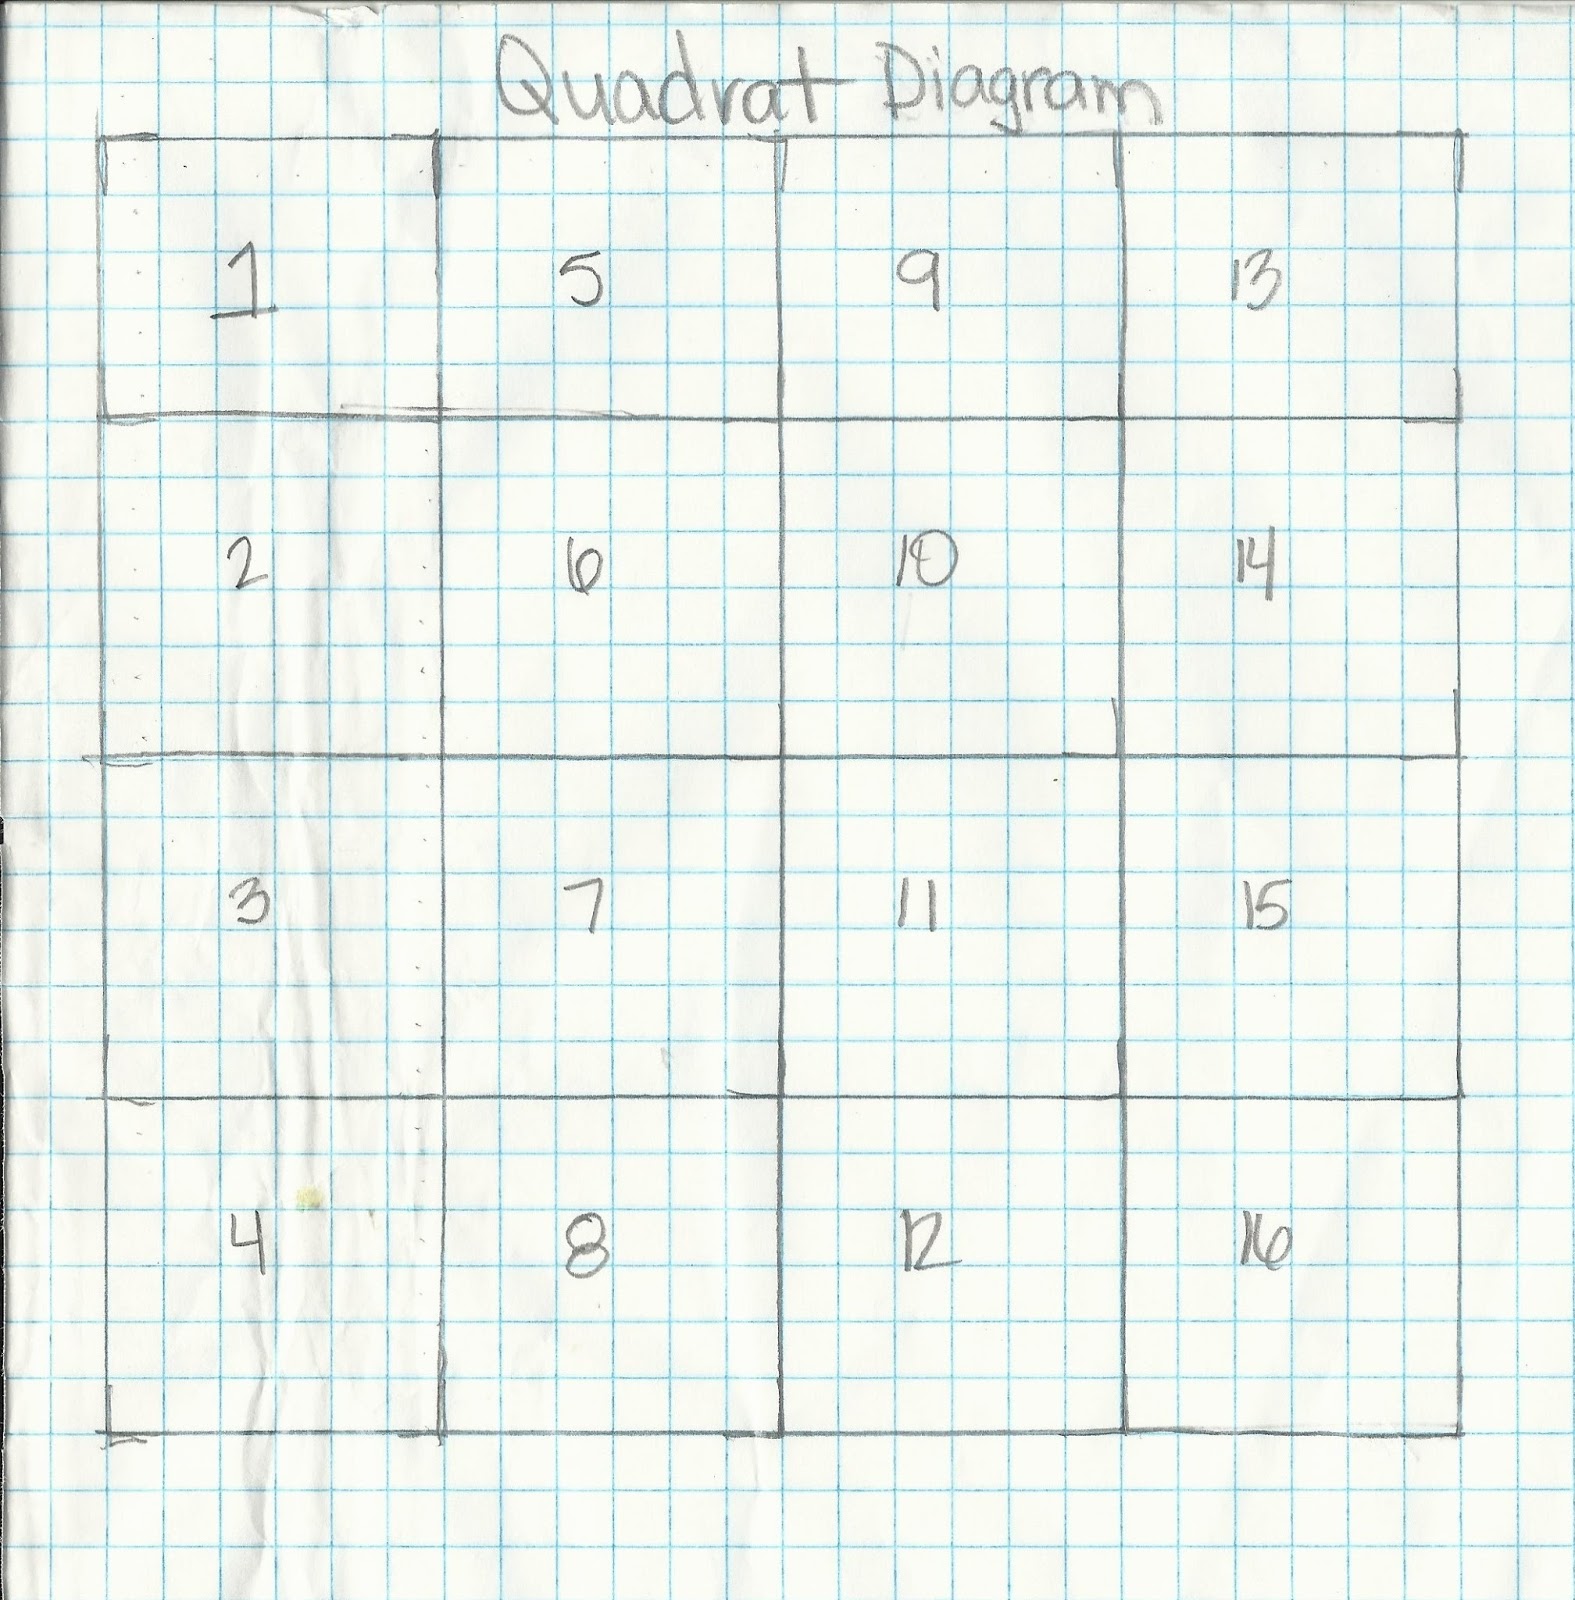 Quadrat Diagram
1 5 9 13
2 6 10 14
3 7 11 15
4 8 12 16